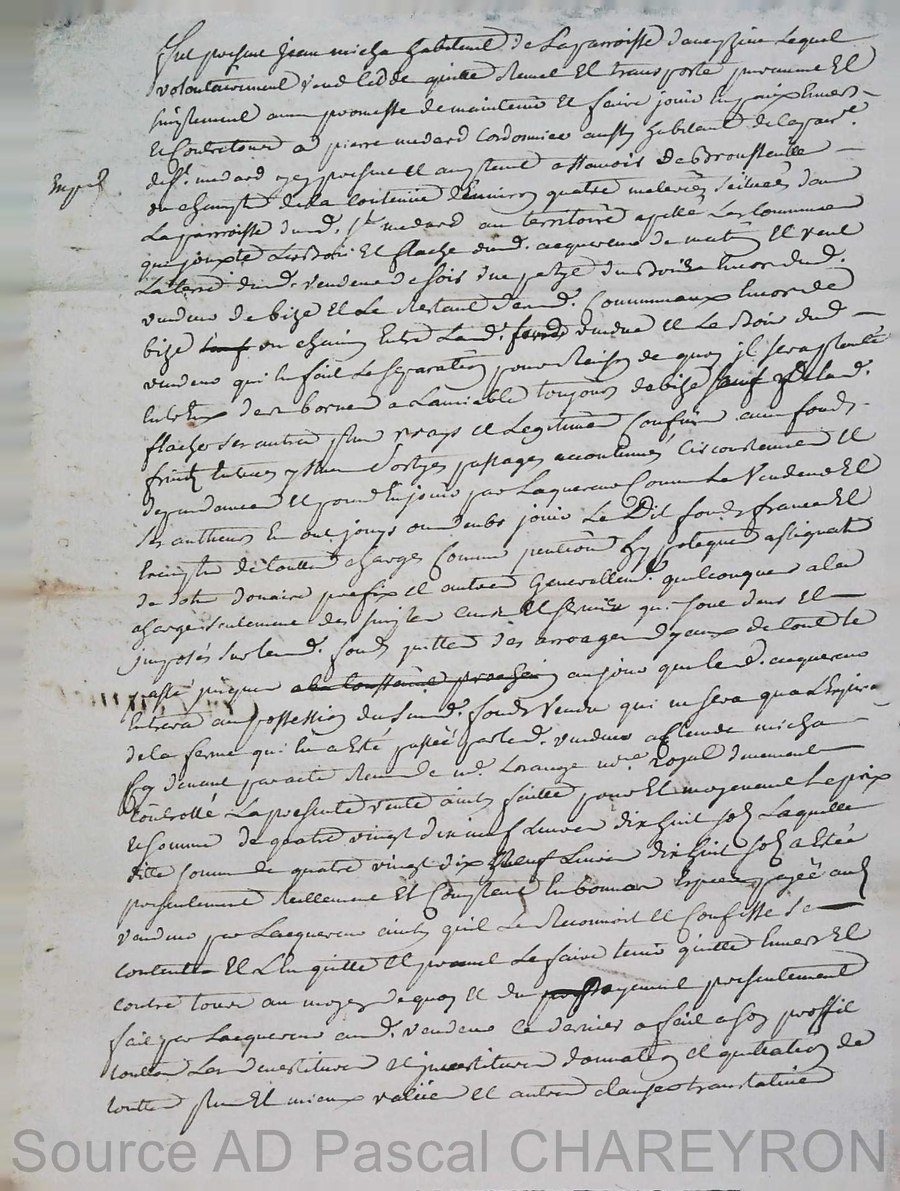 fut present jean micha habitant de La parroisse d
volontairement vend cedde quitte Remet Et transporte purement Et
simplement avec promesse de maintenir Et faire jouir En paix Envers
Et Contre tous a pierre medard Cordonnier aussy habitant de la parr.e
de St. medard icy present Et acceptant assavoir
un champt de la Contenue d'Environ quatre situées dans
La parroisse dud. St. medard au territoire apellé Les Communes
qui jouxte Le Bois Et flache dud. acquereur de matin Et vent
La terre dud. vendeur de soir une petze du Envers dud.
vendeur de bize Et Le Restant desd. Communaux Envers de
bize un chemin Entre Lad. vendue Et Le Bois dud.
vendeur qui En fait La separation pour Raison de quoy il sera planté
des bornes a Lamiable toujours de bize sauf de lad.
flache ses autres plus vrays Et Legitimes Confins avec fonds
fruits passages accoutumés Circonstances Et
dependances Et pour En jouir par Laquereur Comme Le Vendeur Et
ses autheurs En ont jouys ou deubs jouir Le Dit fonds franc Et
Exempt de toutes charges Comme pentions hypoteques assignats
de dot donaire prefix Et autres Generallem.t quelconques a la
charge seulement des simples cens Et servis qui sont deus Et
imposés sur led. fonds quitte des arrerages d'yceux de tout le
passé jusques a la toussaint prochain au jour que led. acquereur
Entrera en possession du susd. fonds vendu qui ne sera qua L'Expira
de la ferme qui En a Esté passée par led. vendeur a Claude micha
cy devant par acte Receu de m.e Lorange n.re Royal duement
controllé La presente vente ainsy faitte pour Et moyenant Le prix
Et somme de quatre vingt dix neuf Livres dix huit sols Laquelle
ditte somme de quatre vingt dix Neuf Livres dix huit sols a Estée
presentement Reellement Et Comptant En bonnes Especes payée aud.
vendeur par Lacquereur ainsy quil Le Reconnoit Et Confesse s'en
contente Et L'en quitte Et promet Le faire tenir quitte Envers Et
contre tous au moyen de quoy Et du payement presentement
fait par Lacquereur aud. vendeur ce dernier a fait a son proffit
toutes Les devestitures Et jnvestitures donnation Et quittation de
toutes plus Et mieux value Et autres clauses translatives
Source AD Pascal CHAREYRON